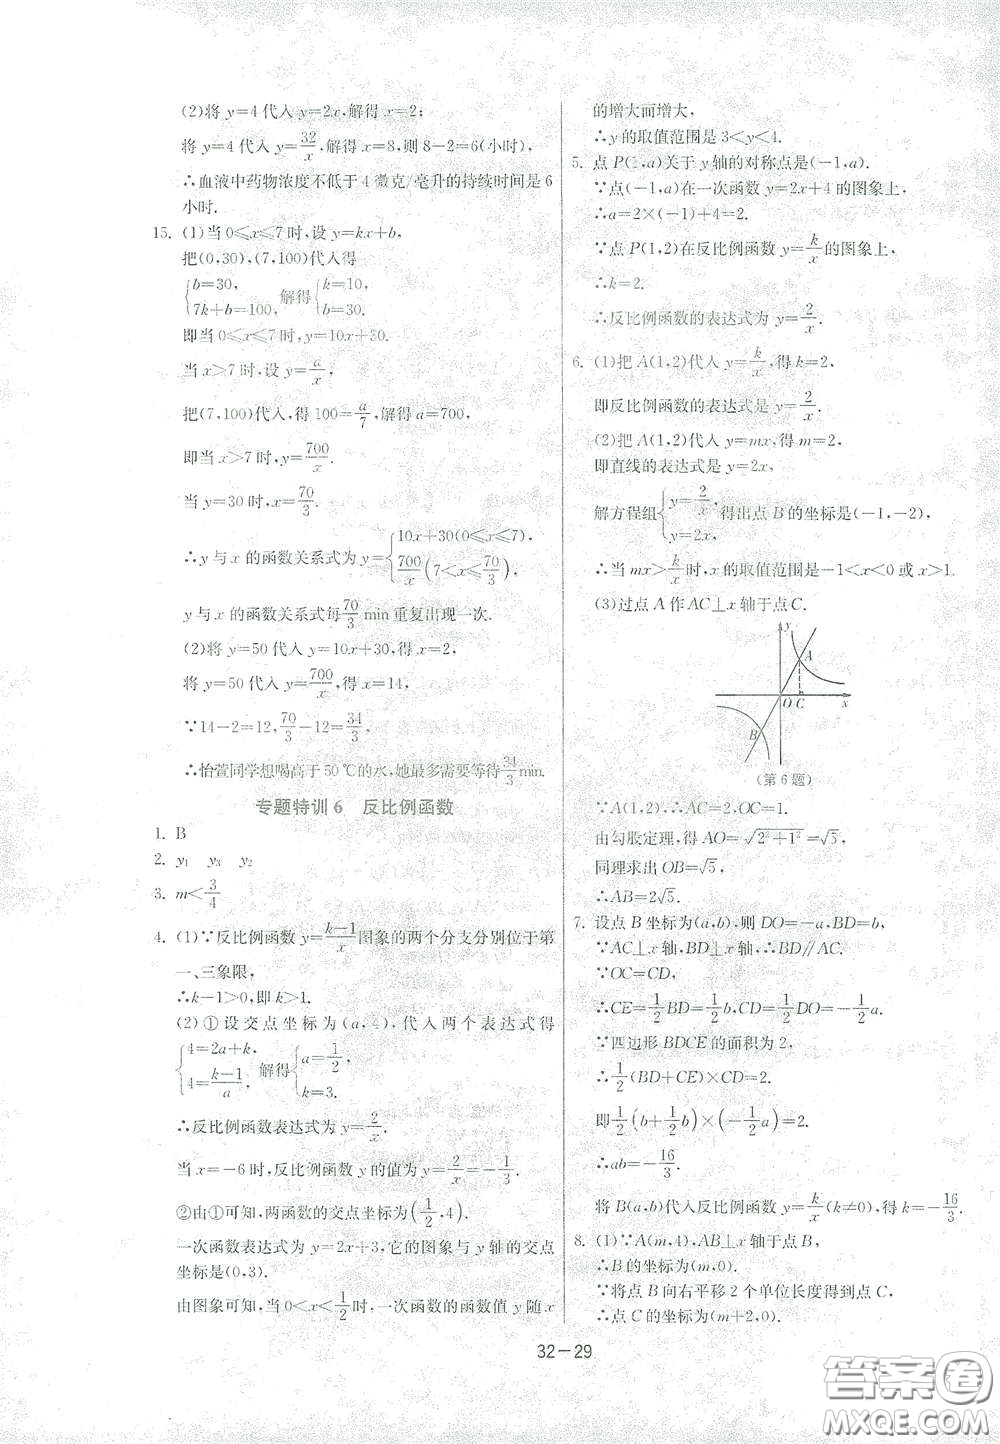 (2)将 y=4代入 y=2x,解得 x=2;
将 y=4代入 y=32/x,解得 x=8,则 8−2=6(小时),
∴血液中药物浓度不低于 4 微克/毫升的持续时间是 6
小时.
15. (1)当 0≤x≤7时,设 y=kx+b,
把(0,30),(7,100)代入得
{b=30, 7k+b=100, 解得{k=10, b=30.
即当 0≤x≤7时,y=10x+30.
当 x>7时,设 y=a/x,
把(7,100)代入,得 100=a/7,解得 a=700,
即当 x>7时,y=700/x.
当 y=30时,x=70/3.
∴y 与 x 的函数关系式为 y={10x+30(0≤x≤7), 700/x(7<x≤70/3),
y与 x 的函数关系式每70/3 min重复出现一次.
(2)将 y=50代入 y=10x+30,得 x=2,
将 y=50代入 y=700/x,得 x=14,
∵14−2=12,70/3−12=34/3,
∴怡萱同学想喝高于 50 ℃的水,她最多需要等待34/3 min.
专题特训 6 反比例函数
1. B
2. y₁ y₃ y₂
3. m<3/4
4. (1)∵反比例函数 y=(k−1)/x图象的两个分支分别位于第
一、三象限,
∴k−1>0,即 k>1.
(2)①设交点坐标为(a,4),代入两个表达式得
{4=2a+k, 4=(k−1)/a, 解得{a=1/2, k=3.
∴反比例函数表达式为 y=2/x.
当 x=−6时,反比例函数 y 的值为 y=2/x=−1/3.
②由①可知,两函数的交点坐标为(1/2,4).
一次函数表达式为 y=2x+3,它的图象与 y 轴的交点
坐标是(0,3).
由图象可知,当 0<x<1/2时,一次函数的函数值 y 随 x
的增大而增大,
∴y的取值范围是 3<y<4.
5. 点 P(1,a)关于 y轴的对称点是(−1,a).
∵点(−1,a)在一次函数 y=2x+4 的图象上,
∴a=2×(−1)+4=2.
∵点 P(1,2)在反比例函数 y=k/x的图象上,
∴k=2.
∴反比例函数的表达式为 y=2/x.
6. (1)把 A(1,2)代入 y=k/x,得 k=2,
即反比例函数的表达式是 y=2/x.
(2)把 A(1,2)代入 y=mx,得 m=2,
即直线的表达式是 y=2x,
解方程组{y=2/x, y=2x,得出点 B 的坐标是(−1,−2),
∴当 mx>k/x时,x的取值范围是−1<x<0 或 x>1.
(3)过点 A 作 AC⊥x 轴于点 C.
y
A
O C x
B
(第 6 题)
∵A(1,2),∴AC=2,OC=1.
由勾股定理,得 AO=√(2²+1²)=√5,
同理求出 OB=√5,
∴AB=2√5.
7. 设点 B 坐标为(a,b),则 DO=−a,BD=b,
∵AC⊥x 轴,BD⊥x 轴,∴BD∥AC.
∵OC=CD,
∴CE=1/2BD=1/2b,CD=1/2DO=−1/2a.
∵四边形 BDCE 的面积为 2,
∴1/2(BD+CE)×CD=2.
即1/2(b+1/2b)×(−1/2a)=2.
∴ab=−16/3.
将 B(a,b)代入反比例函数 y=k/x(k≠0),得 k=−16/3.
8. (1)∵A(m,4),AB⊥x 轴于点 B,
∴B 的坐标为(m,0).
∵将点 B 向右平移 2 个单位长度得到点 C,
∴点 C 的坐标为(m+2,0).
32−29
答案圈
MXQE.COM